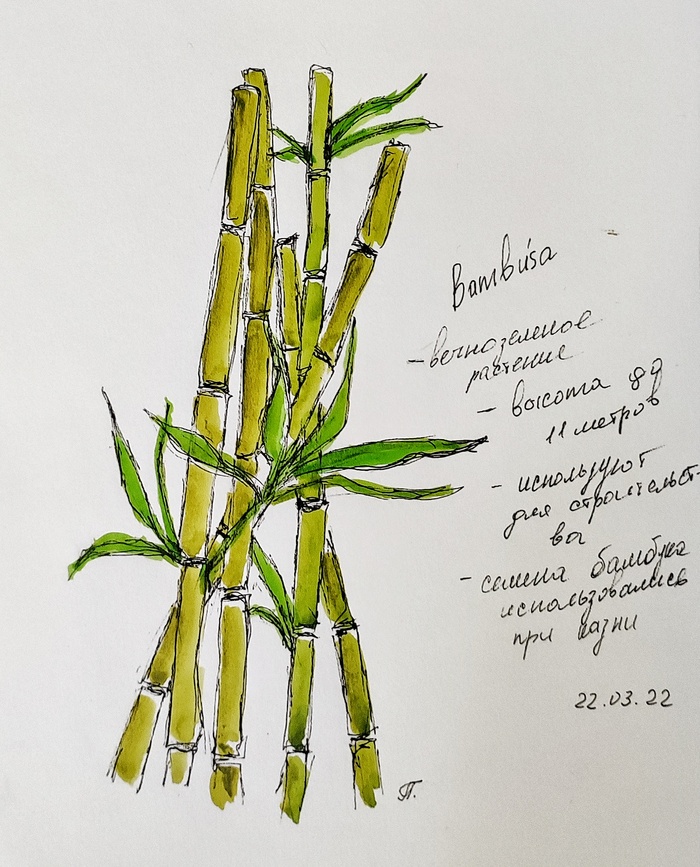 Bambusa
- вечнозеленое
растение
- высота до
11 метров
- используют
для строительст-
ва
- семена бамбука
использовались
при казни
22.03.22
П.